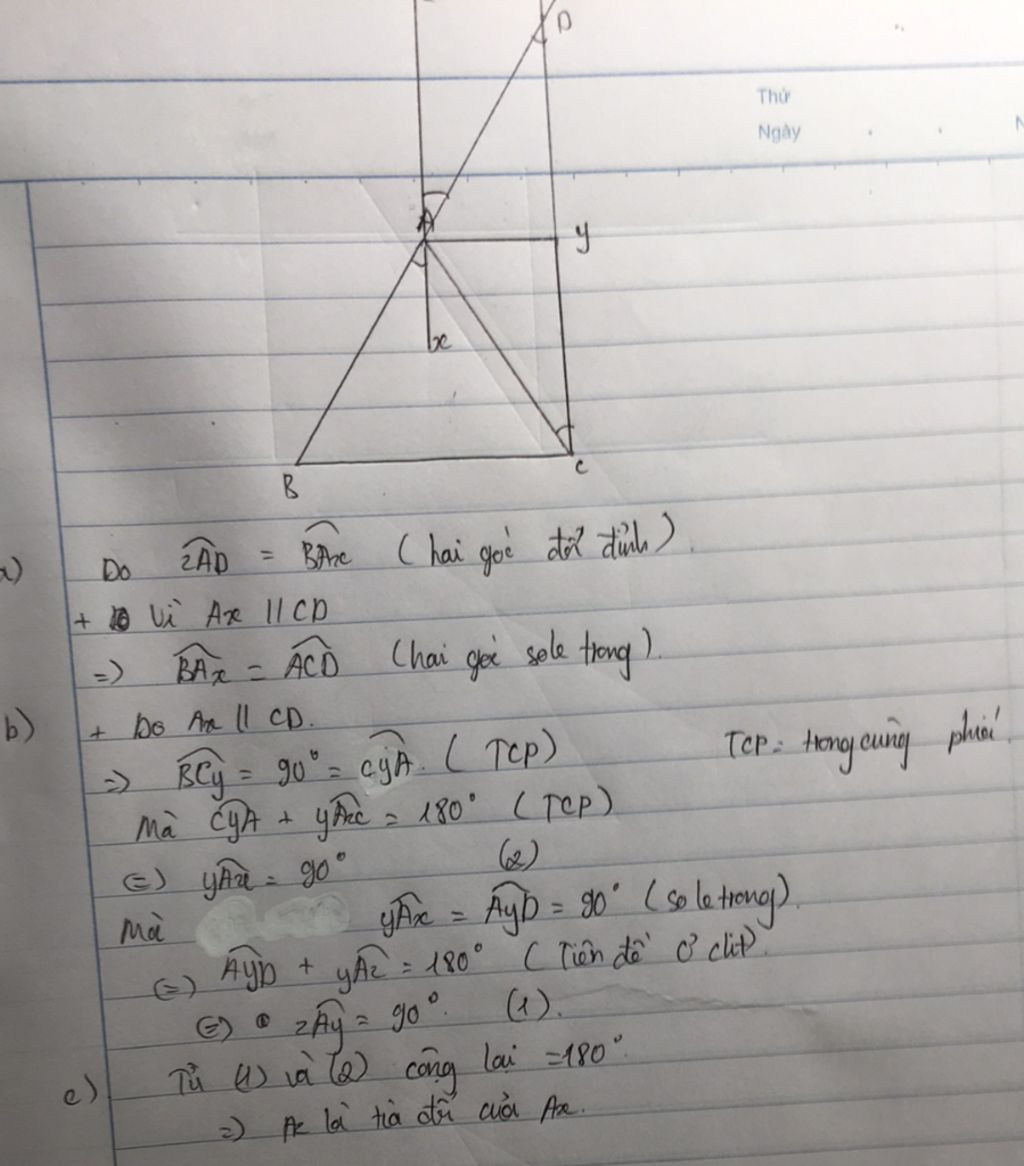 D
Thứ
Ngày
A
y
x
B
C
a) Do zAD = BAx (hai góc đối đỉnh)
+ Vì Ax // CD
=> BAx = ACD (hai góc sole trong).
b) + Do Ax // CD.
=> BCy = 90° = CyA. (TCP) TCP = trong cùng phía
Mà CyA + yAx = 180° (TCP)
(=) yAx = 90° (2)
Mà yAx = AyD = 90° (so le trong).
(=) AyD + yAz = 180° (Tiên đề Ơ clit).
(=) zAy = 90°. (1).
c) Từ (1) và (2) cộng lại = 180°.
=> Az là tia đối của Ax.